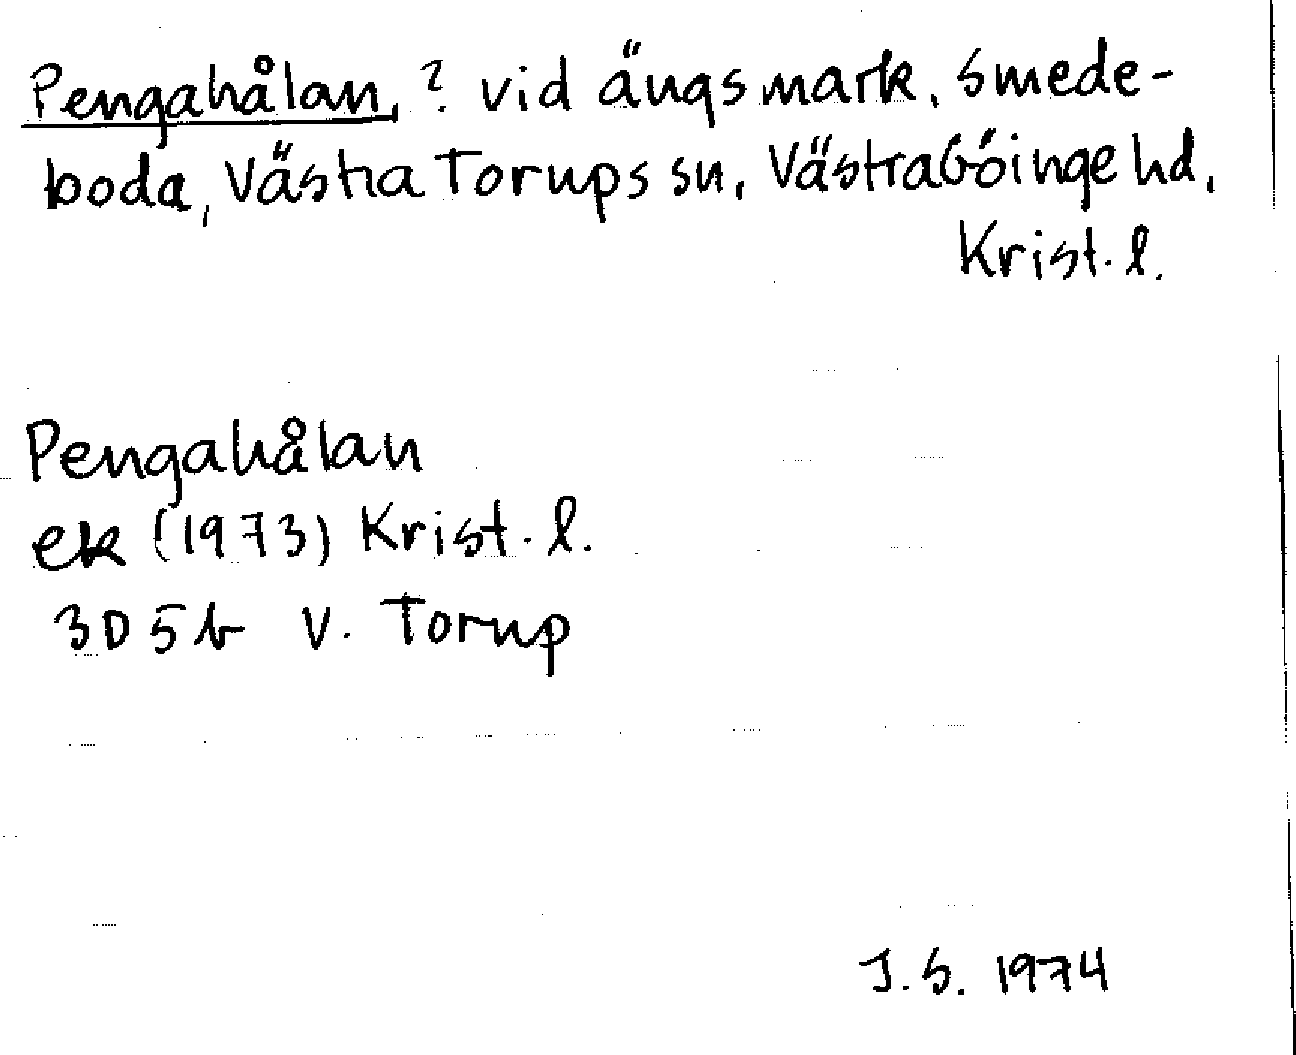 Pengahålan, ? vid ängsmark, Smede-
boda, Västra Torups sn, Västra Göinge hd,
Krist. l.
Pengahålan
ek (1973) Krist. l.
3D5b V. Torup
J.S. 1974